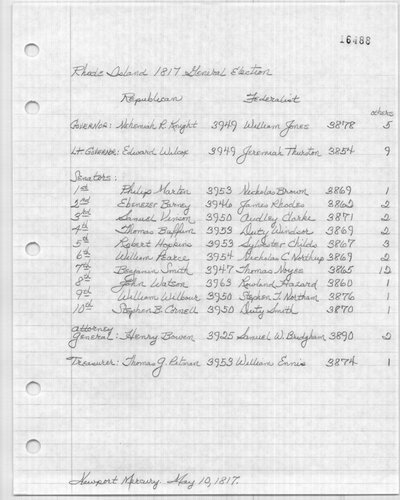 16488
Rhode Island 1817 General Election
Republican Federalist
others
Governor: Nehemiah R. Knight 3949 William Jones 3878 5
Lt. Governor: Edward Wilcox 3949 Jeremiah Thurston 3854 9
Senators:
1st Philip Martin 3953 Nicholas Brown 3869 1
2nd Ebenezer Barney 3946 James Rhodes 3862 2
3rd Samuel Vinson 3950 Audley Clarke 3871 2
4th Thomas Buffum 3953 Duty Windsor 3869 2
5th Robert Hopkins 3953 Sylvester Childs 3867 3
6th William Pearce 3954 Nicholas C Northup 3869 2
7th Benjamin Smith 3947 Thomas Noyes 3865 12
8th John Watson 3963 Rowland Hazard 3860 1
9th William Wilbour 3950 Stephen T. Northam 3876 1
10th Stephen B. Cornell 3950 Duty Smith 3870 1
Attorney
General: Henry Bowen 3925 Samuel W. Bridgham 3890 2
Treasurer: Thomas G. Pitman 3953 William Ennis 3874 1
Newport Mercury. May 10, 1817.